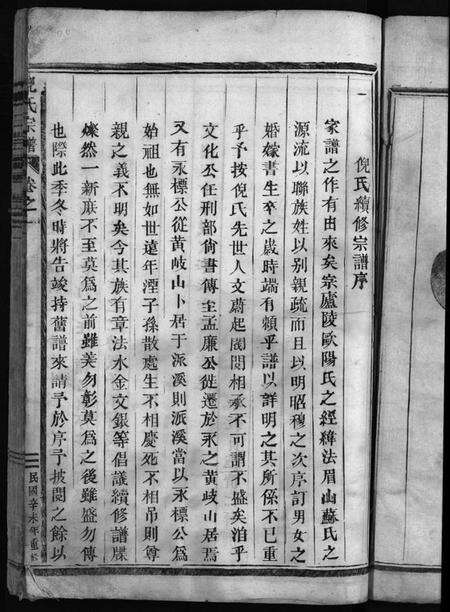 倪氏續修宗譜序
家譜之作有由來矣宗廬陵歐陽氏之經緯法眉山蘇氏之
源流以聯族姓以别親疏而且以明昭穆之次序訂男女之
婚嫁書生卒之歲時端有賴乎譜以詳明之其所係不已重
乎予按倪氏先世人文蔚起閥閱相承不可謂不盛矣洎乎
文化公任刑部尚書傳至孟廉公徙遷於永之黄岐山居焉
又有永標公從黄岐山卜居于派溪則派溪當以永標公爲
始祖也無如世遠年湮子孫散處生不相慶死不相吊則尊
親之義不明矣今其族有章法水金文銀等倡議續修譜牒
燦然一新庶不至莫爲之前雖美勿彰莫爲之後雖盛勿傳
也際此季冬時將告竣持舊譜來請予於序予披閲之餘以
倪氏宗譜
卷之
民國辛未年重